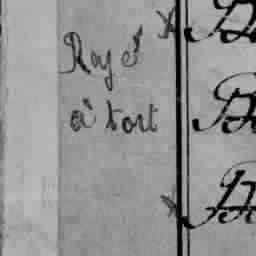 Rayé
à tort